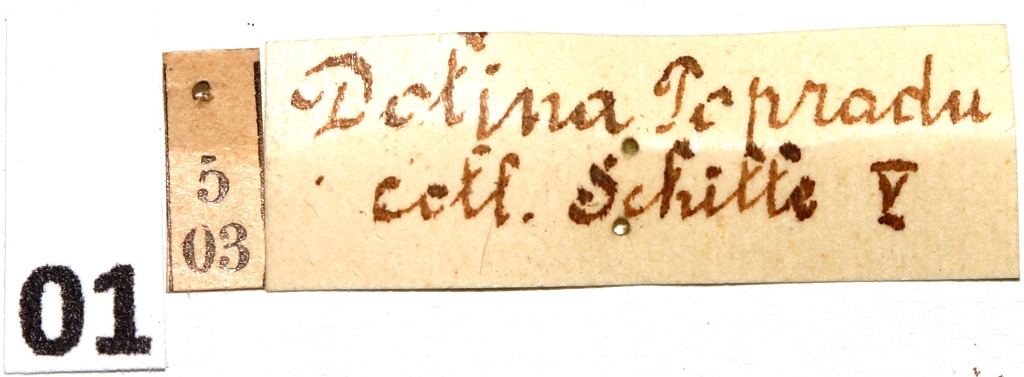 01
5
03
Dolina Popradu
coll. Schille V